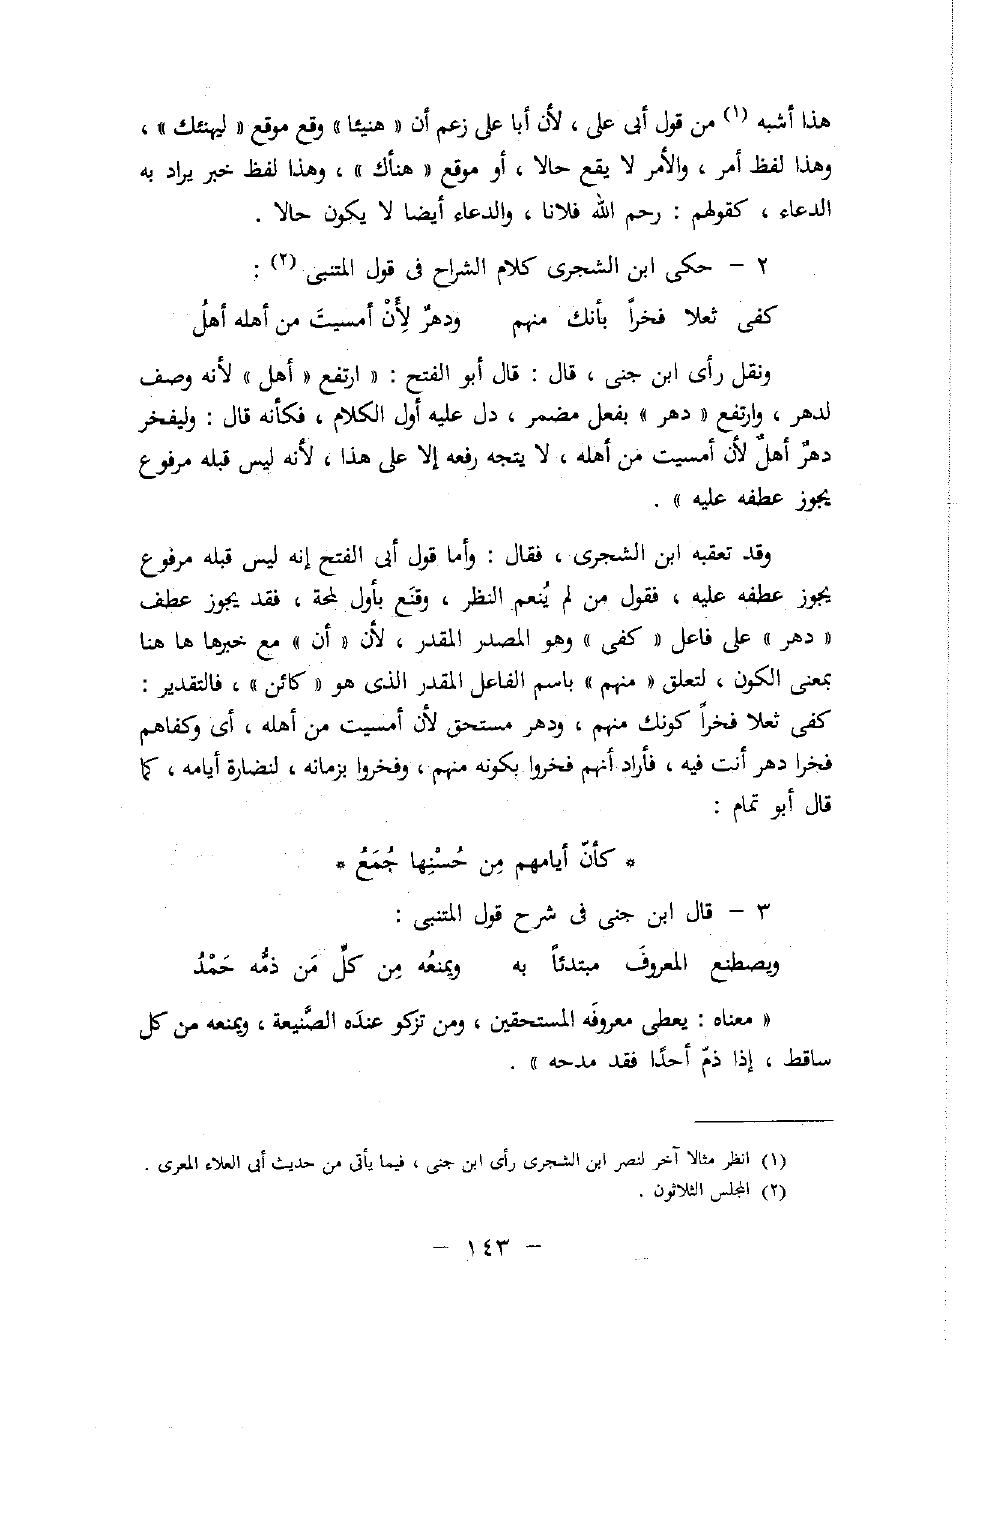 هذا أشبه (١) من قول أبى على ، لأن أبا على زعم أن « هنيئا » وقع موقع « ليهنئك » ،
وهذا لفظ أمر ، والأمر لا يقع حالا ، أو موقع « هنأك » ، وهذا لفظ خبر يراد به
الدعاء ، كقولهم : رحم الله فلانا ، والدعاء أيضا لا يكون حالا .
٢ – حكى ابن الشجرى كلام الشراح فى قول المتنبى (٢) :
كفى ثعلا فخراً بأنك منهم ودهرٌ لِأَنْ أمسيتَ من أهله أهلُ
ونقل رأى ابن جنى ، قال : قال أبو الفتح : « ارتفع « أهل » لأنه وصف
لدهر ، وارتفع « دهر » بفعل مضمر ، دل عليه أول الكلام ، فكأنه قال : وليفخر
دهرٌ أهلٌ لأن أمسيت من أهله ، لا يتجه رفعه إلا على هذا ، لأنه ليس قبله مرفوع
يجوز عطفه عليه » .
وقد تعقبه ابن الشجرى ، فقال : وأما قول أبى الفتح إنه ليس قبله مرفوع
يجوز عطفه عليه ، فقول من لم يُنعم النظر ، وقنَع بأول لمحة ، فقد يجوز عطف
« دهر » على فاعل « كفى » وهو المصدر المقدر ، لأن « أن » مع خبرها ها هنا
بمعنى الكون ، لتعلق « منهم » باسم الفاعل المقدر الذى هو « كائن » ، فالتقدير :
كفى ثعلا فخراً كونك منهم ، ودهر مستحق لأن أمسيت من أهله ، أى وكفاهم
فخرا دهر أنت فيه ، فأراد أنهم فخروا بكونه منهم ، وفخروا بزمانه ، لنضارة أيامه ، كما
قال أبو تمام :
* كأنّ أيامهم مِن حُسْنِها جُمَعُ *
٣ – قال ابن جنى فى شرح قول المتنبى :
ويصطنع المعروفَ مبتدئاً به ويمنعُه مِن كلِّ مَن ذمُّه حَمْدُ
« معناه : يعطى معروفَه المستحقين ، ومن تزكو عندَه الصَّنيعة ، ويمنعه من كل
ساقط ، إذا ذمّ أحدًا فقد مدحه » .
(١) انظر مثالا آخر لنصر ابن الشجرى رأى ابن جنى ، فيما يأتى من حديث أبى العلاء المعرى .
(٢) المجلس الثلاثون .
– ١٤٣ –